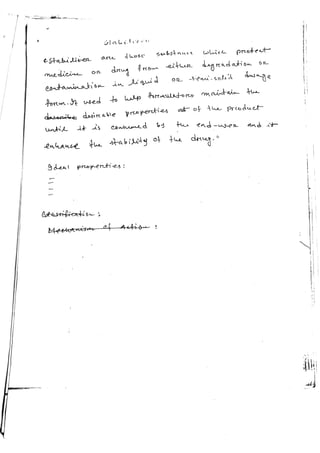 Stabilizers
"Stabilizer are those substance which protect
medicine or drug from either degradation or
contamination in liquid or semi-solid dosage
form. It used to help formulators maintain the
describe desirable properties at of the product
until it is consumed by the end-user and it
enhance the stability of the drug."
Ideal properties:
—
—
—
Classification:
Mechanism of Action :